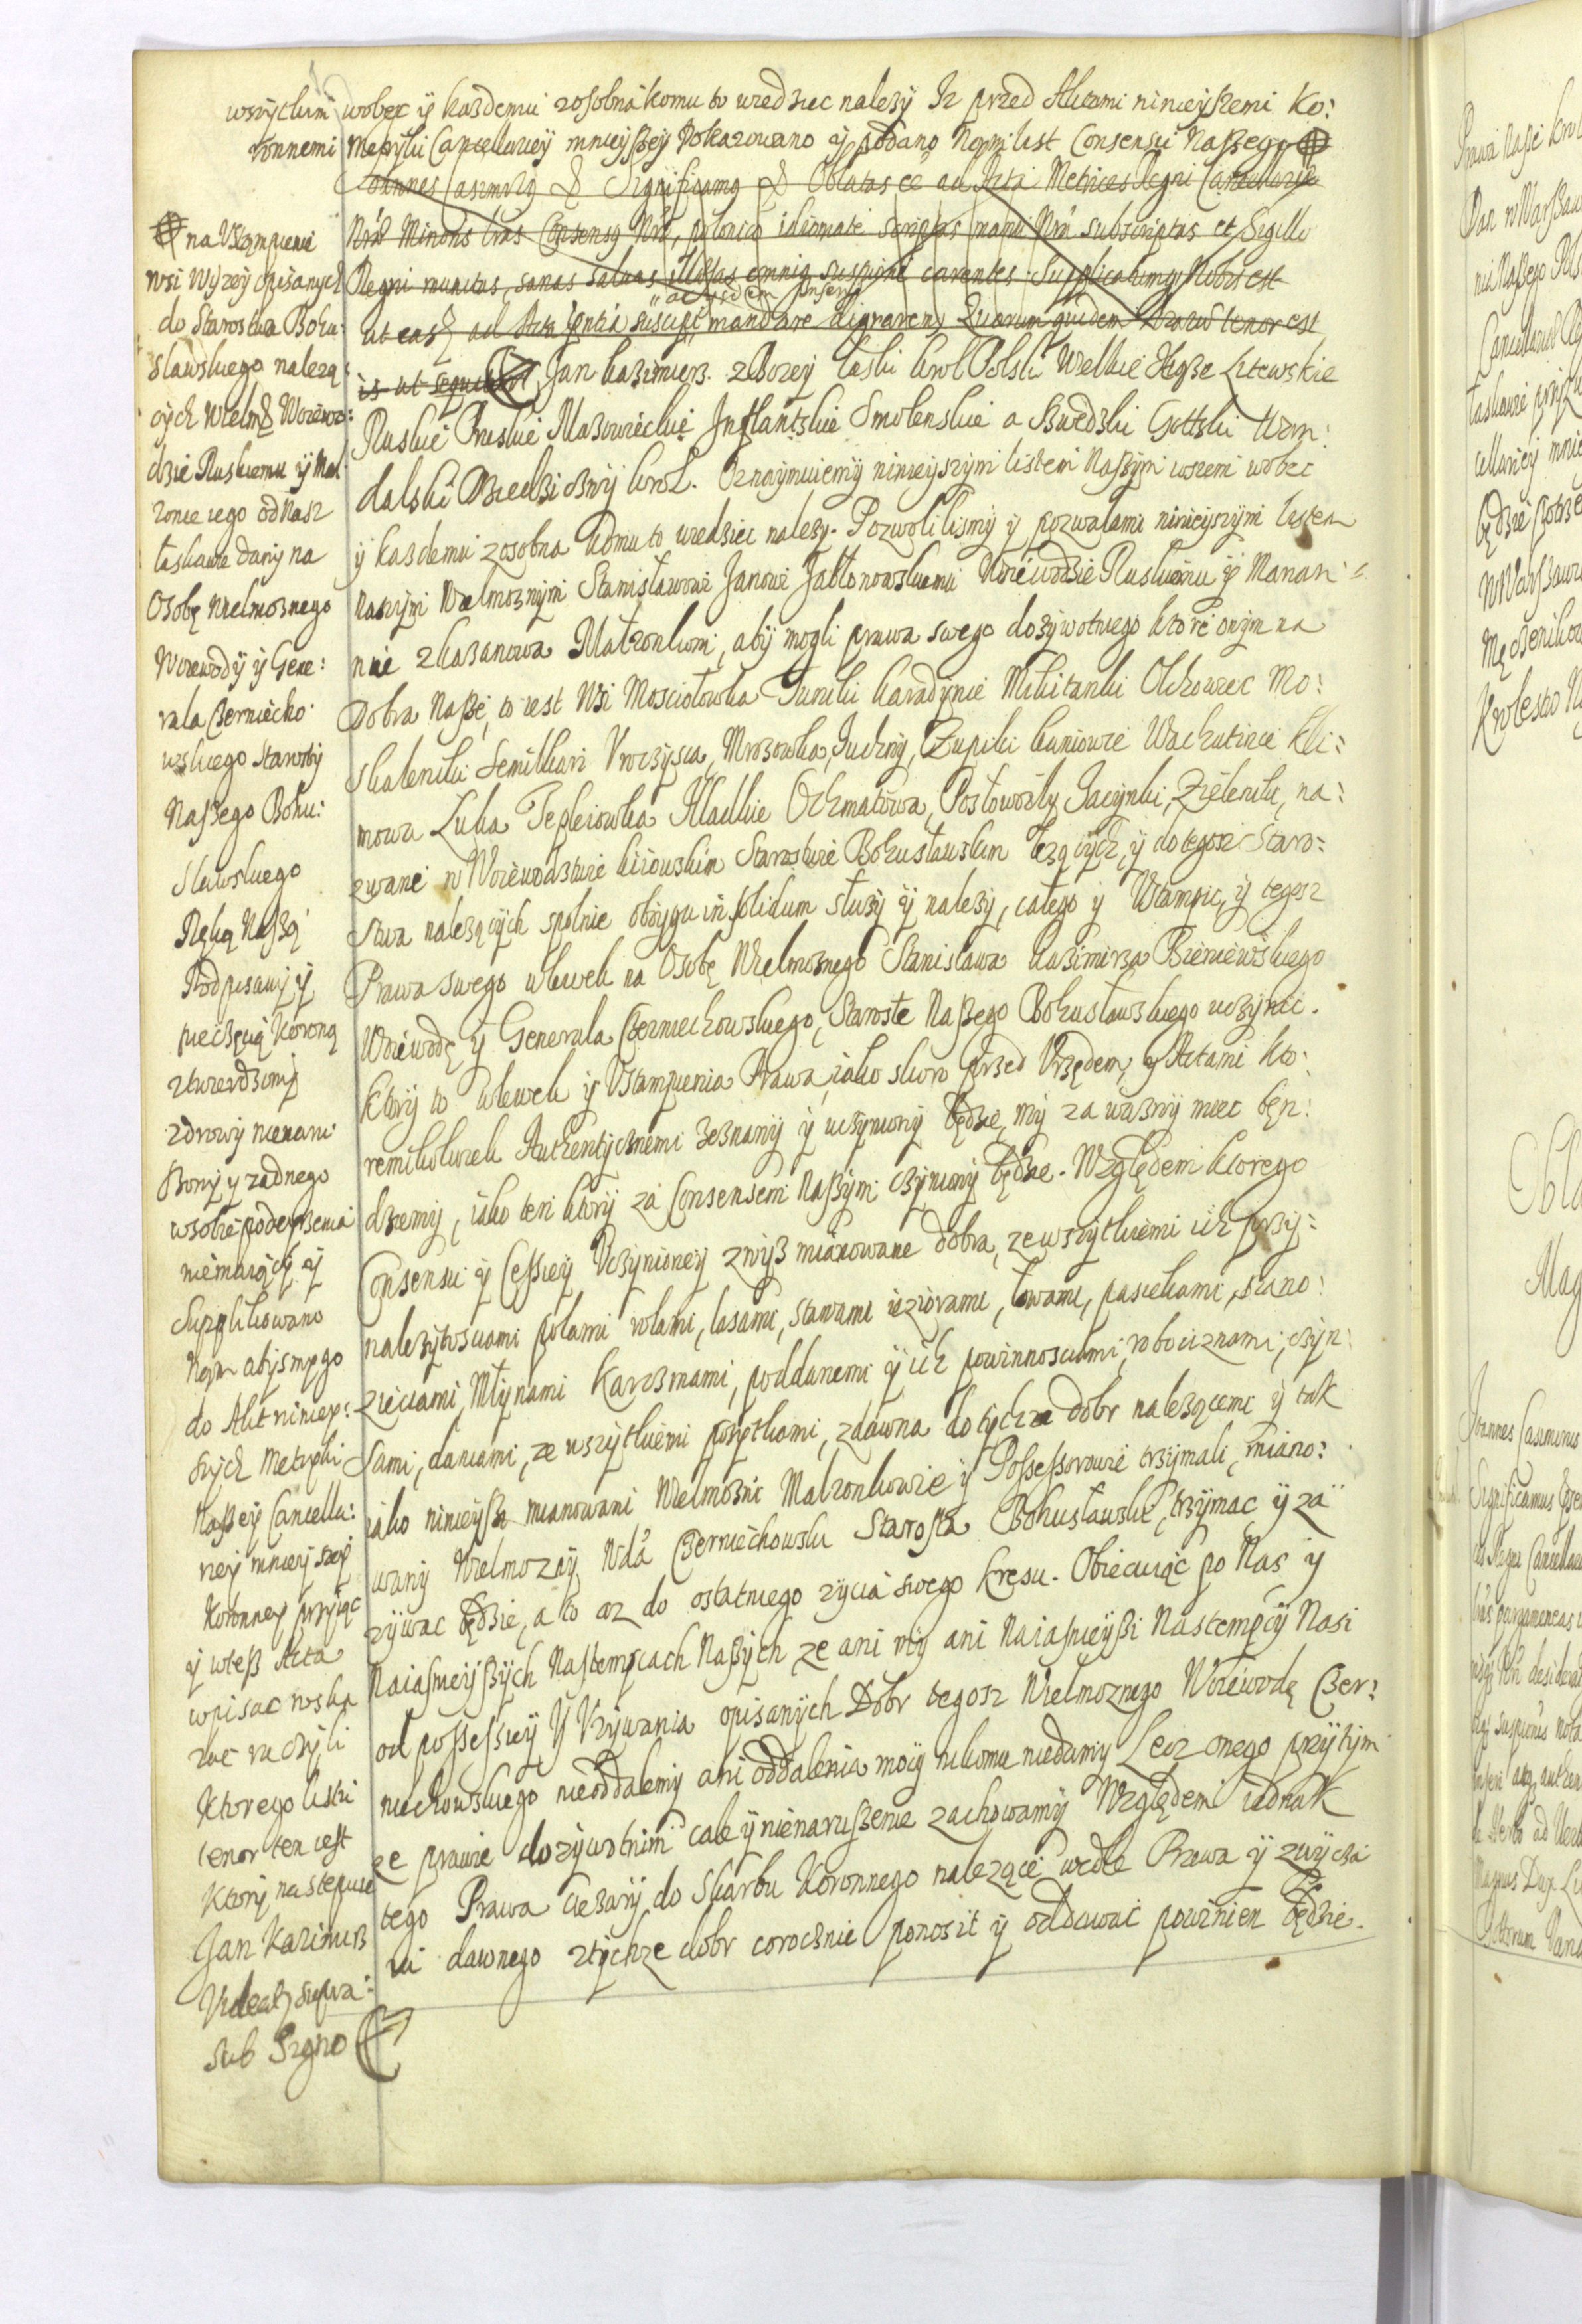 wszytkim wobec ÿ kazdemu zosobna komu to wiedziec nalezÿ Iz przed Aktami ninieÿszemi Ko:
ronnemi Metryki Cancellarieÿ mnieÿszeÿ Pokazowano ÿ podano Nam list Consensu Naszego
Joannes Casimirus & Significamus & Oblatas ee ad Acta Metrices Regni Cancellariae
Nrae Minoris lras Consensus Nri, polonico idiomate scriptas manu Nra subscriptas et Sigillo
Regni munitas, sanas salvas illaesas omniq suspicione carentes. Supplicatumq Nobis est
ac eisdem inseri
ut eas ad Acta pntia suscipi mandare dignaremur Quarum quidem tenor est
is ut sequitur Jan Kazimierz z Bozeÿ laski krol Polski Wielkie Xsze Litewskie
Ruskie Pruskie Mazowieckie Inflantskie Smolenskie a Szwedzki Gottski Wan:
dalski Dziedzicznÿ krol. Oznaÿmuiemÿ ninieÿszÿm listem Naszÿm wszem wobec
ÿ kazdemu zosobna komu to wiedziec nalezÿ. Pozwolilismÿ ÿ pozwalamÿ ninieÿszÿm listem
naszÿm Wielmoznÿm Stanisławowi Janowi Jabłonowskiemu Woiewodzie Ruskiemu ÿ Marian:
nie z Kazanowa Małzonkom, abÿ mogli prawa swego dozÿwotniego ktore onÿm na
Dobra Nasze, to iest Wsi Mosciołowka Turniki karadynie Mikitanki Olchowiec Mo:
skalenki Semilkari Vroczÿsca, Mrozowka, Juchnÿ, Czupiki kuniowie Wachutince kli:
mowa Luka Tepleiowka Kladkie Ochmatowa, Postoworky Jacynki, Zielenki, na:
zwane w Woiewodztwie kiiowskim Starostwie Bohusławskim lezących, ÿ do tegosz Staro:
stwa nalezących spolnie oboygu in solidum słuzÿ ÿ nalezÿ, całego ÿ Vstampic, ÿ tegosz
Prawa swego wlewek na Osobę Wielmoznego Stanisława Kazimirza Bieniewskiego
Woiewodę ÿ Generala Czerniechowskiego, Staroste Naszego Bohusławskiego uczÿnic.
Ktorÿ to wlewek ÿ Vstampienia Prawa, iako skoro przed Vrzędem, ÿ Aktami kto:
remikolwiek Authentycznemi zeznanÿ ÿ uczÿnionÿ będzie, mÿ za waznÿ miec bęn:
dziemÿ, iako ten ktorÿ za Consensem Naszÿm czÿnionÿ będzie. Względem ktorego
Consensu ÿ Cessieÿ Vczÿnioneÿ zwÿsz mianowane dobra, ze wszytkiemi ich przÿ:
nalezÿtosciami polami rolami, lasami, stawami ieziorami, łowami, pasiekami, siano:
zieciami, Młÿnami karczmami, poddanemi ÿ ich powinnosciami, robociznami, czÿn:
szami, daniami, ze wszÿtkiemi pozÿtkami, zdawna do tÿchze dobr nalezącemi ÿ tak
iako ninieÿsze mianowani Wielmozni Malzonkowie ÿ Possessorowie trzÿmali, miano:
wanÿ Wielmoznÿ Wda Czerniechowski Starosta Bohusławski, trzÿmac ÿ za
zÿwac będzie, a to az do ostatniego zÿcia swego kresu. Obiecuiąc po Nas ÿ
Naiasnieÿszÿch Nastempcach Naszÿch ze ani mÿ ani Naiasnieÿszi Nastempcÿ Nasi
od possessieÿ ÿ Vzÿwania opisanÿch Dobr tegosz Wielmoznego Woiewodę Czer:
niechowskiego nieoddalemÿ ani oddalenia mocÿ nikomu niedamÿ Lecz onego przÿ tÿm
ze prawie dozÿwotnim cale ÿ nienaruszenie zachowamÿ Względem iednak
tego Prawa ciezarÿ do Skarbu Koronnego nalezące wedle Prawa ÿ zwÿcza
iu dawnego ztÿchze dobr corocznie ponosic ÿ oddawać powinien będzie.
na Vstąmpienie
wsi wyzeÿ opisanych
do Starostwa Bohu:
slawskiego nalezą:
cÿch Wielmo Woiewo:
dzie Ruskiemu ÿ Mal:
zonce iego od Nasz
łaskawie danÿ na
Osobę Wielmoznego
Woiewodÿ ÿ Gene:
rala Czerniecho:
wskiego Starostÿ
Naszego Bohu:
slawskiego
Ręką Naszą
Podpisanÿ ÿ
pieczęcią Koroną
ztwierdzonÿ
zdrowÿ nienaru:
szonÿ ÿ zadnego
w sobie podeÿrzenia
niemaiącÿ ÿ
Supplikowano
Nam abÿsmÿ go
do Akt nineÿ:
szÿch Metryki
Naszeÿ Cancella:
rieÿ mnieÿszeÿ
Koronneÿ przÿiąc
ÿ w tesz Acta
wpisac roska
zac raczÿli
Ktorego listu
tenor ten iest
Ktorÿ nastepuie
Jan Kazimirz
Videatur supra:
Sub Signo